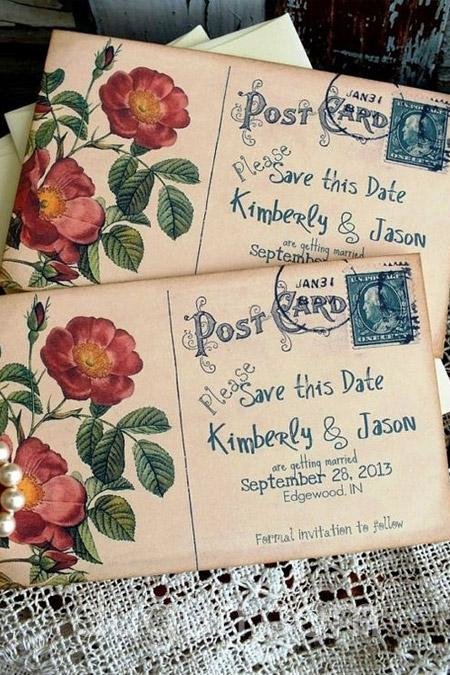 JAN 31
POST CARD
ONE CENT
Please
Save this Date
Kimberly & Jason
are getting married
September
JAN 31
U.S. POSTAGE
POST CARD
Please
Save this Date
Kimberly & Jason
are getting married
September 28, 2013
Edgewood, IN
Formal invitation to follow